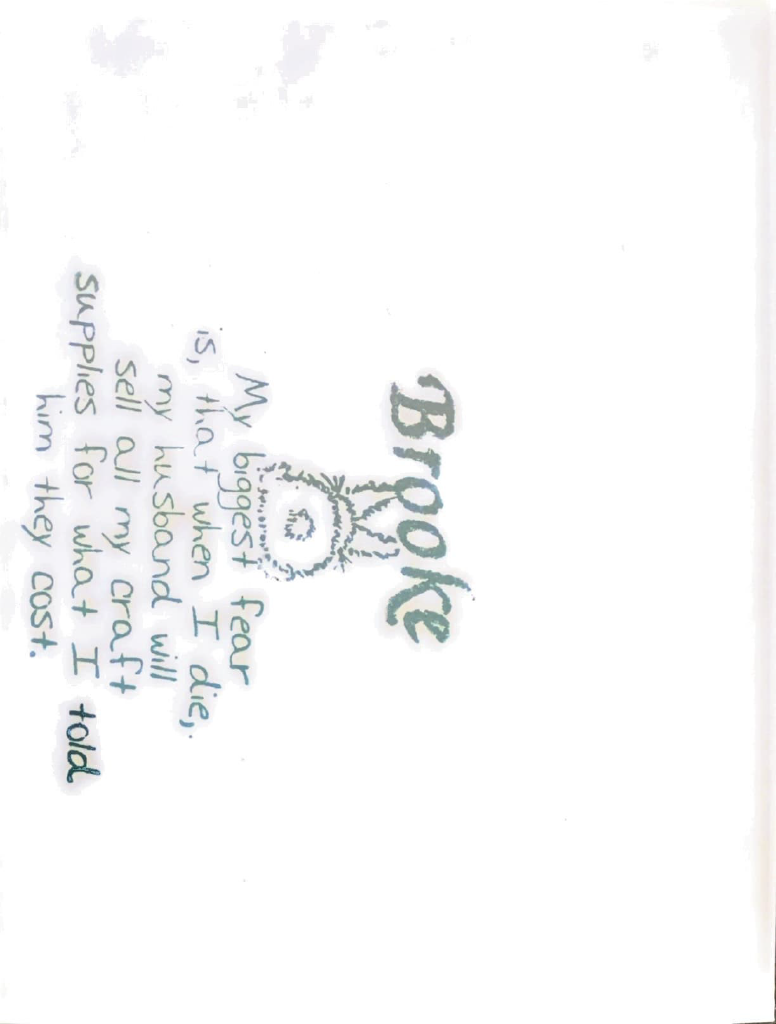 Brooke
My biggest fear
is, that when I die,
my husband will
sell all my craft
supplies for what I told
him they cost.